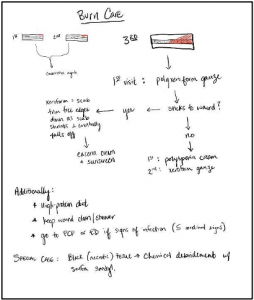 Burn Care
1st
2nd
3rd
1st visit : polysporin gauze
sticks to wound?
yes
no
xeroform = scab
trim the edges
down as scab
shrinks + eventually
falls off
eucerin cream
+ sunscreen
1st: polysporin cream
2nd: xeroform gauze
Additionally:
* High-protein diet
* Keep wound clean/shower
* go to PCP or ED if signs of infection (5 cardinal signs)
Special case: Black (necrotic) tissue → Chemical debridement w/
santyl.